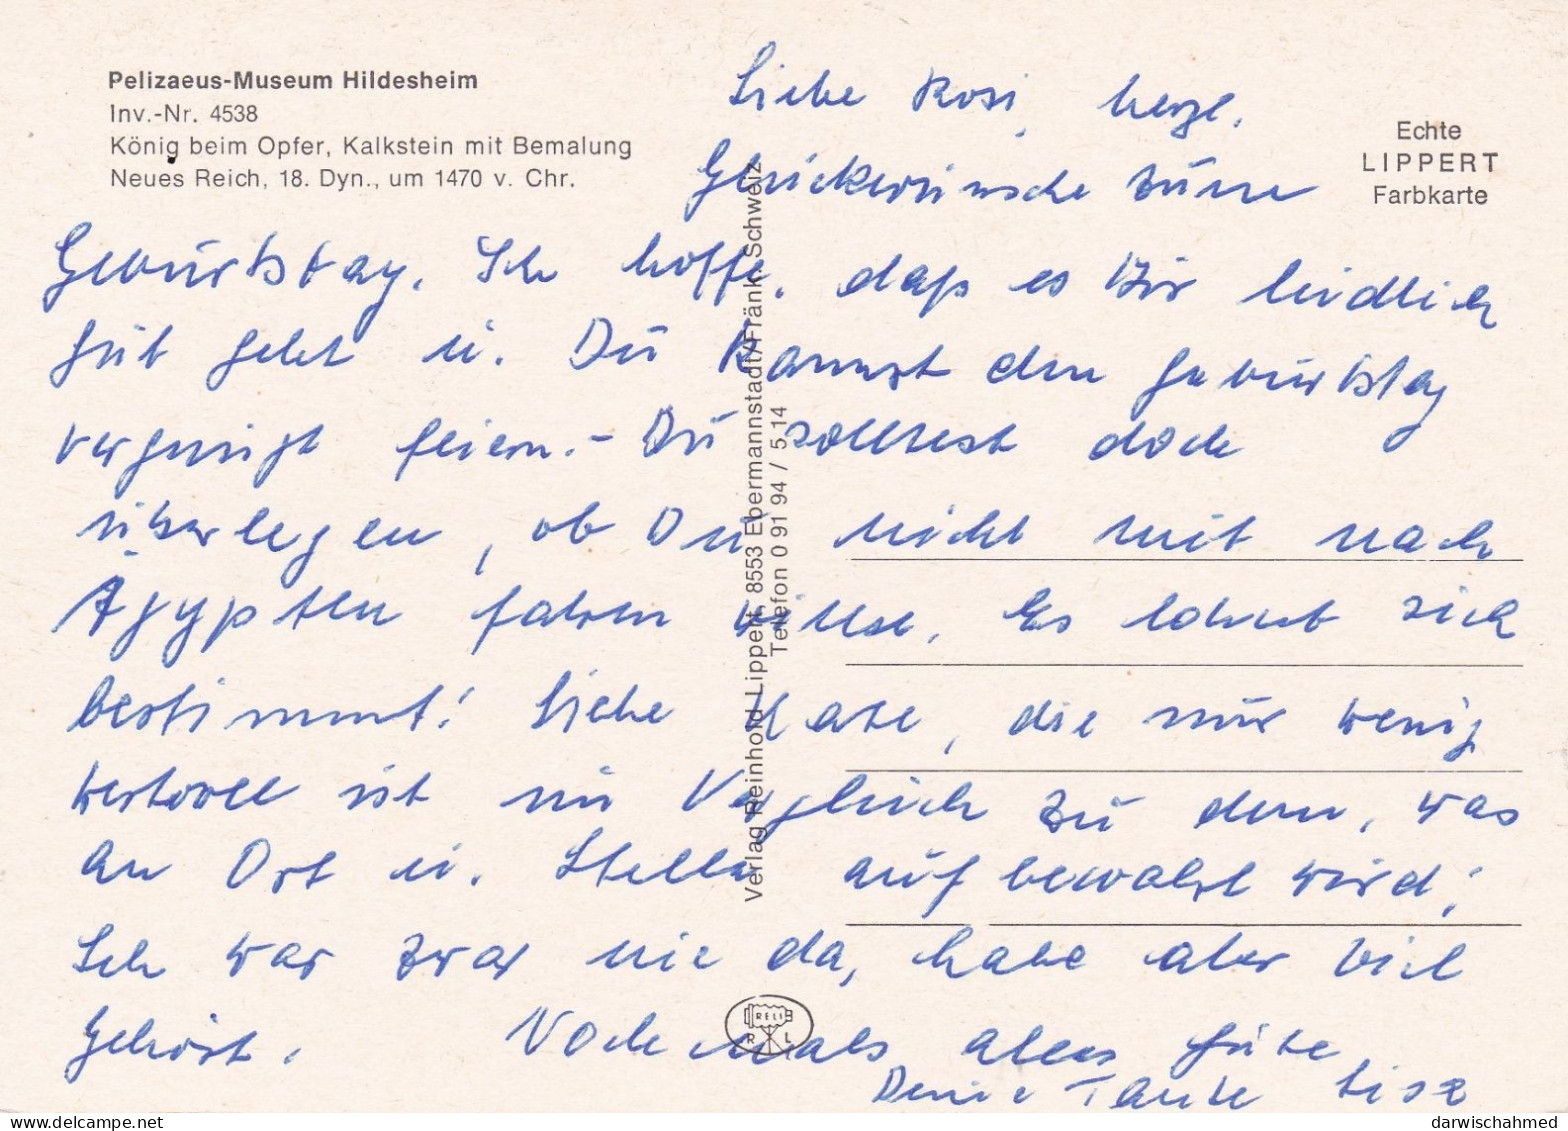 Pelizaeus-Museum Hildesheim
Inv.-Nr. 4538
König beim Opfer, Kalkstein mit Bemalung
Neues Reich, 18. Dyn., um 1470 v. Chr.
Echte
LIPPERT
Farbkarte
Liebe Rosi, herzl.
Glückwünsche zum
Geburtstag. Ich hoffe, daß es Dir leidlich
gut geht u. Du kannst den Geburtstag
vergnügt feiern. – Du solltest doch
überlegen, ob Du nicht mit nach
Ägypten fahren willst. Es lohnt sich
bestimmt! Siehe Karte, die nur wenig
wertvoll ist im Vergleich zu dem, was
an Ort u. Stelle aufbewahrt wird!
Ich war zwar nie da, habe aber viel
gehört. Nochmals alles Gute
Deine Tante Lise
Verlag Reinhold Lippert, 8553 Ebermannstadt/Fränk. Schweiz
Telefon 0 91 94 / 5 14
RELI
R L
darwischahmed